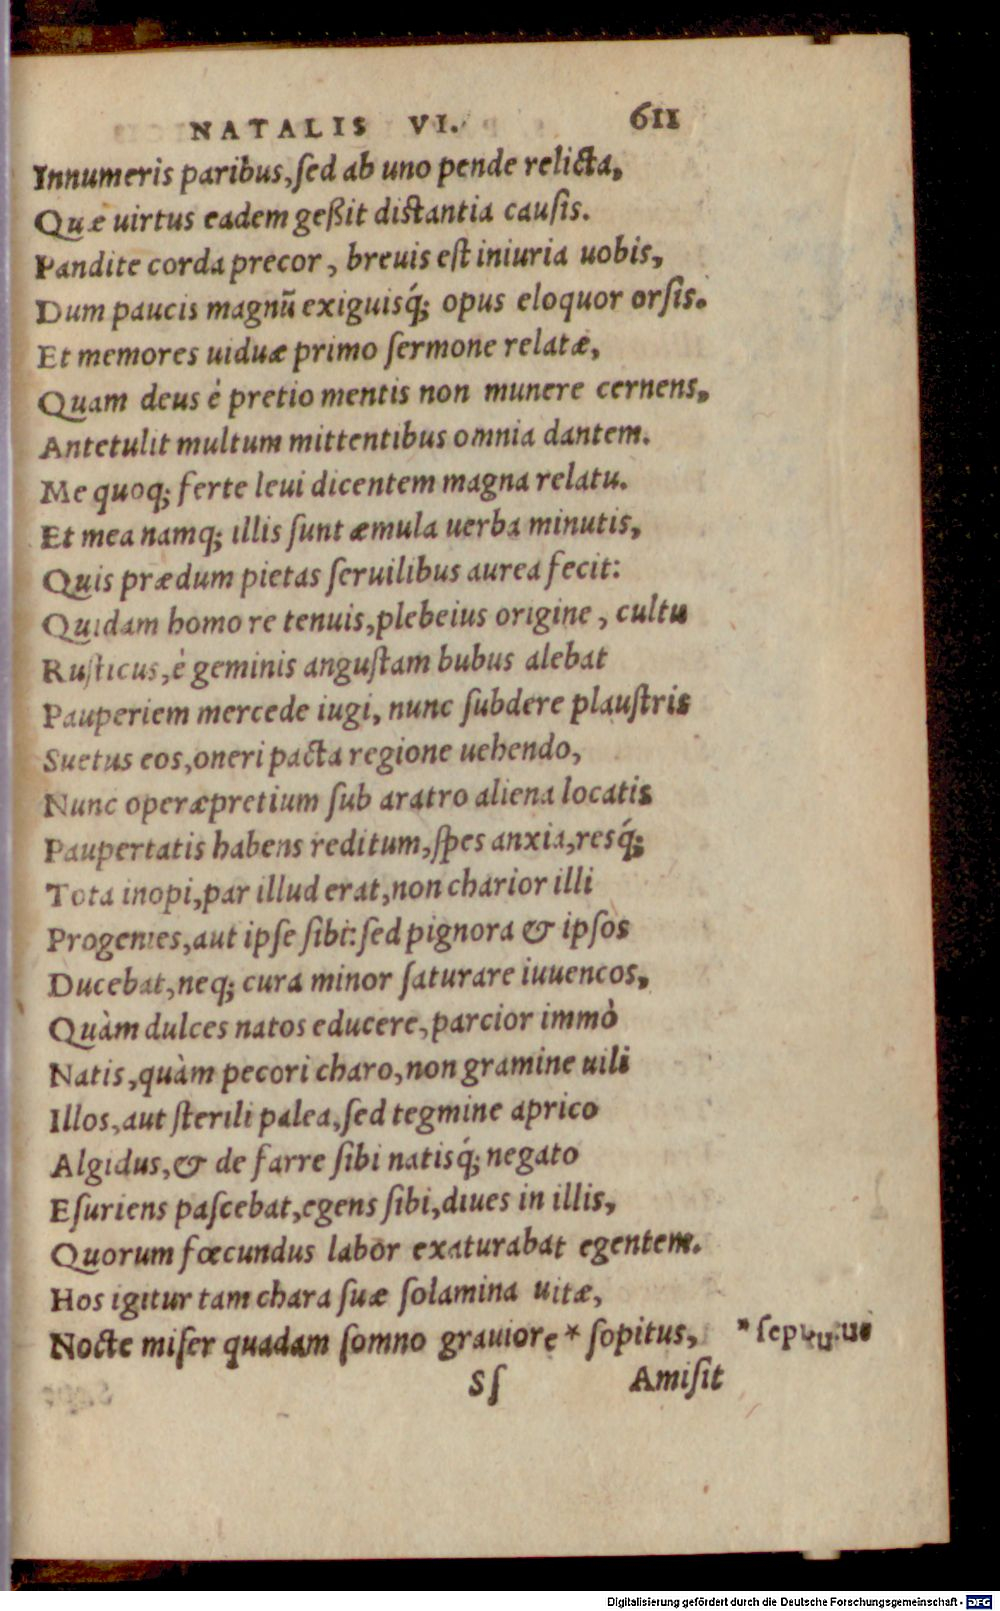 NATALIS VI. 611
Innumeris paribus, ſed ab uno pende relicta,
Quæ uirtus eadem geßit diſtantia cauſis.
Pandite corda precor, breuis eſt iniuria uobis,
Dum paucis magnũ exiguisq́; opus eloquor orſis.
Et memores uiduæ primo ſermone relatæ,
Quam deus è pretio mentis non munere cernens,
Antetulit multum mittentibus omnia dantem.
Me quoq; ferte leui dicentem magna relatu.
Et mea namq; illis ſunt æmula uerba minutis,
Quis prædum pietas ſeruilibus aurea fecit:
Quidam homo re tenuis, plebeius origine, cultu
Ruſticus, è geminis anguſtam bubus alebat
Pauperiem mercede iugi, nunc ſubdere plauſtris
Suetus eos, oneri pacta regione uehendo,
Nunc operæpretium ſub aratro aliena locatis
Paupertatis habens reditum, ſpes anxia, resq́;
Tota inopi, par illud erat, non charior illi
Progenies, aut ipſe ſibi: ſed pignora & ipſos
Ducebat, neq; cura minor ſaturare iuuencos,
Quàm dulces natos educere, parcior immò
Natis, quàm pecori charo, non gramine uili
Illos, aut ſterili palea, ſed tegmine aprico
Algidus, & de farre ſibi natisq́; negato
Eſuriens paſcebat, egens ſibi, diues in illis,
Quorum fœcundus labor exaturabat egentem.
Hos igitur tam chara ſuæ ſolamina uitæ,
Nocte miſer quadam ſomno grauiore * ſopitus,
Sſ Amiſit
Digitalisierung gefördert durch die Deutsche Forschungsgemeinschaft - DFG